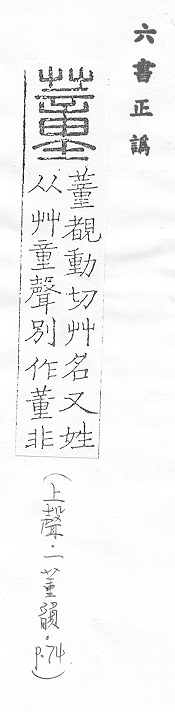 六書正譌
蕫
蕫覩動切艸名又姓
从艸童聲別作董非
(上聲·一董韻·p.74)